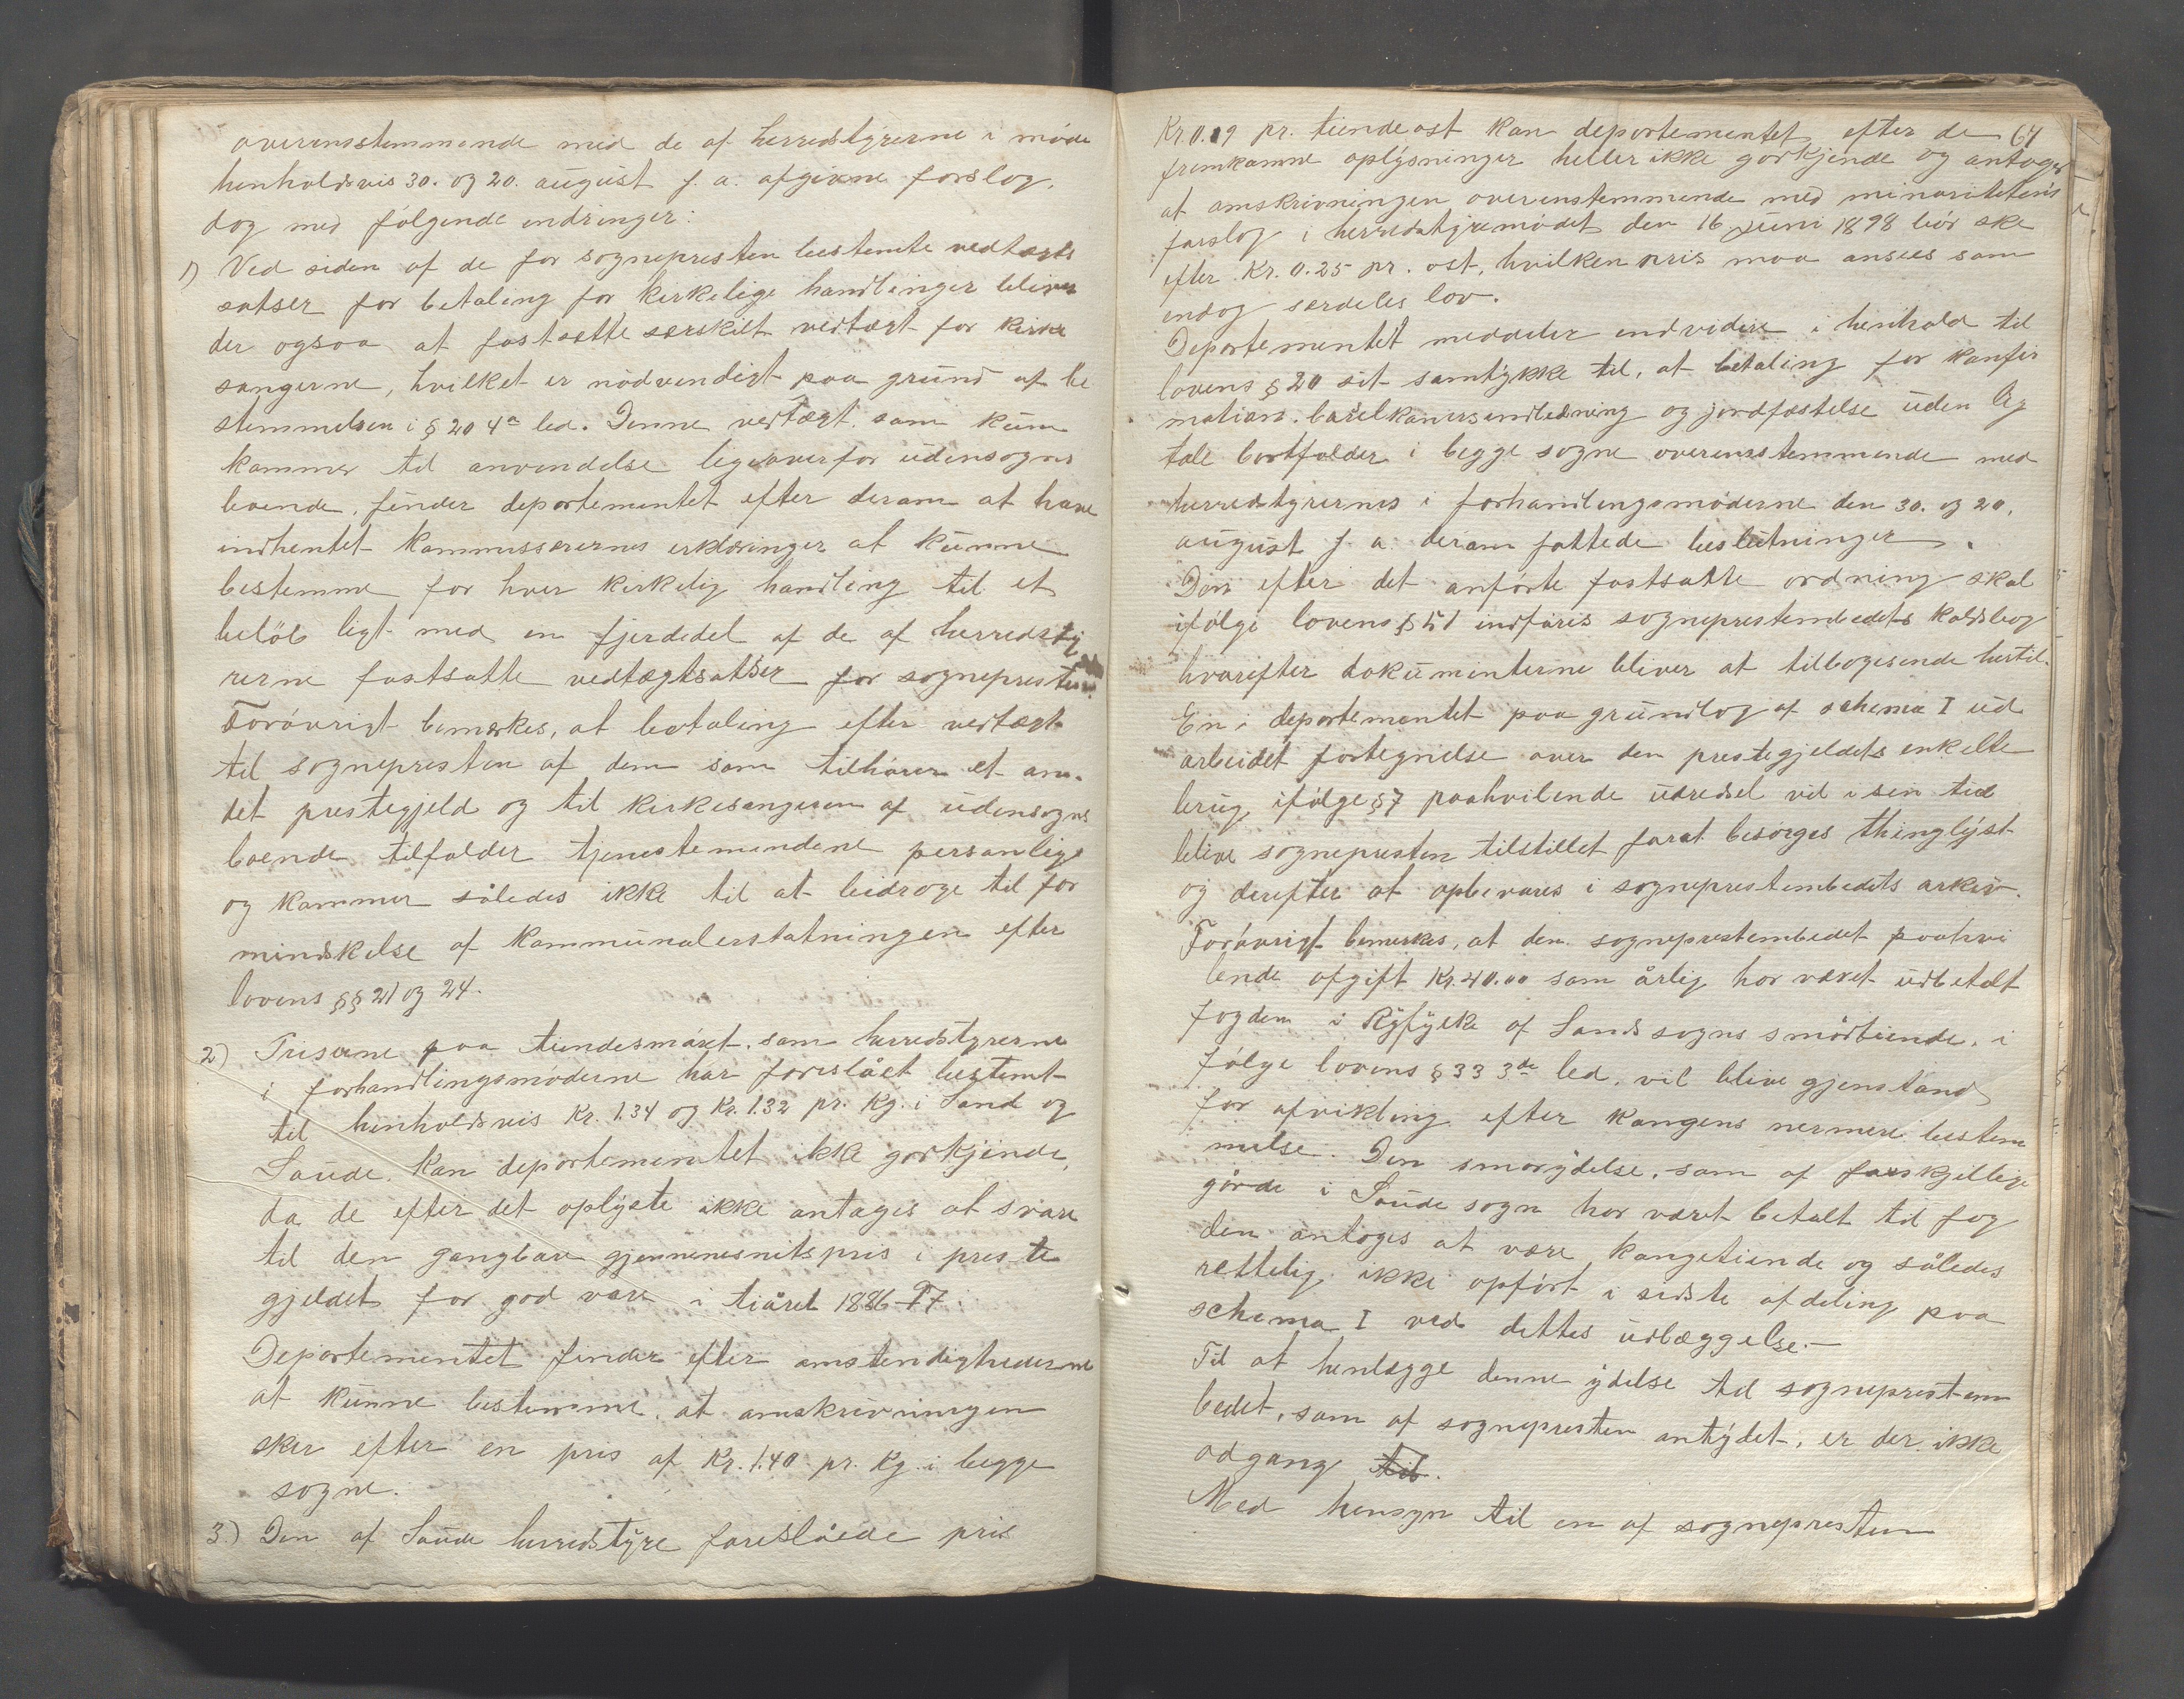 overensstemmende med de af herredstyrerne i møde
henholdsvis 30. og 20. august f. a. afgivne forslag,
dog med følgende endringer:
1) Ved siden af de for sognepresten bestemte vedtægts
satser for betaling for kirkelige handlinger bliver
der ogsaa at fastsætte særskilt vedtægt for kirke
sangerne, hvilket er nødvendigt paa grund af be
stemmelsen i § 20 4de led. Denne vedtægt, som kun
kommer til anvendelse ligeoverfor udensogns
boende, finder departementet efter derom at have
indhentet kommissærernes erklæringer at kunne
bestemme for hver kirkelig handling til et
beløb ligt med en fjerdedel af de af herredsty
rerne fastsatte vedtægtsatser for sognepresten.
Forøvrigt bemærkes, at betaling efter vedtægt
til sognepresten af dem som tilhører et an-
det prestegjeld og til kirkesangeren af udensogns
boende tilfalder tjenestemændene personlige
og kommer således ikke til at bidrage til for
mindskelse af kommunalerstatningen efter
lovens §§ 21 og 24.
2) Priserne paa tiendesmøret, som herredstyrerne
i forhandlingsmøderne har foreslået bestemt
til henholdsvis Kr. 1.34 og Kr. 1.32 pr. Kg. i Sand og
Saude, kan departementet ikke godkjende,
da de efter det oplyste ikke antages at svare
til den gangbare gjennemsnitspris i preste
gjeldet for god vare i tiåret 1886-97.
Departementet finder efter omstendighederne
at kunne bestemme, at omskrivningen
sker efter en pris af Kr. 1.40 pr. Kg. i begge
sogne.
3.) Den af Saude herredstyre foreslåede pris
67
Kr. 0.19 pr. tiendeost kan departementet efter de
fremkomne oplysninger heller ikke godkjende og antages
at omskrivningen overenstemmende med minoritetens
forslag i herredstyremødet den 16 juni 1898 bør ske
efter Kr. 0.25 pr. ost, hvilken pris maa ansees som
endog særdeles lav.
Departementet meddeler endvidere i henhold til
lovens § 20 sit samtykke til, at betaling for konfir
mation, barselkoners indledning og jordfæstelse uden lig
tale bortfalder i begge sogne overensstemmende med
herredstyrernes i forhandlingsmøderne den 30. og 20.
august f. a. derom fattede beslutninger.
Den efter det anførte fastsatte ordning skal
ifølge lovens § 51 indføres sogneprestembedets kaldsbog
hvorefter dokumenterne bliver at tilbagesende hertil.
En i departementet paa grundlag af schema I ud
arbeidet fortegnelse over den prestegjeldets enkelte
brug ifølge § 7 paahvilende udredsel vil i sin tid
blive sognepresten tilstillet forat besørges thinglyst
og derefter at opbevares i sogneprestembedets arkiv.
Forøvrigt bemerkes, at den sogneprestembedet paahvi
lende afgift Kr. 40.00 som årlig har været udbetalt
fogden i Ryfylke af Sands sogns smørtiende, i
følge lovens § 33 3de led, vil blive gjenstand
for afvikling efter Kongens nærmere bestem
melse. Den smørydelse, som af forskjellige
gårde i Saude sogn har været betalt til fog
den antages at være kongetiende og således
rettelig ikke opført i sidste afdeling paa
schema I ved dettes udlæggelse.—
Til at henlægge denne ydelse til sogneprestem
bedet, som af sognepresten antydet, er der ikke
adgang til.
Med hensyn til en af sognepresten